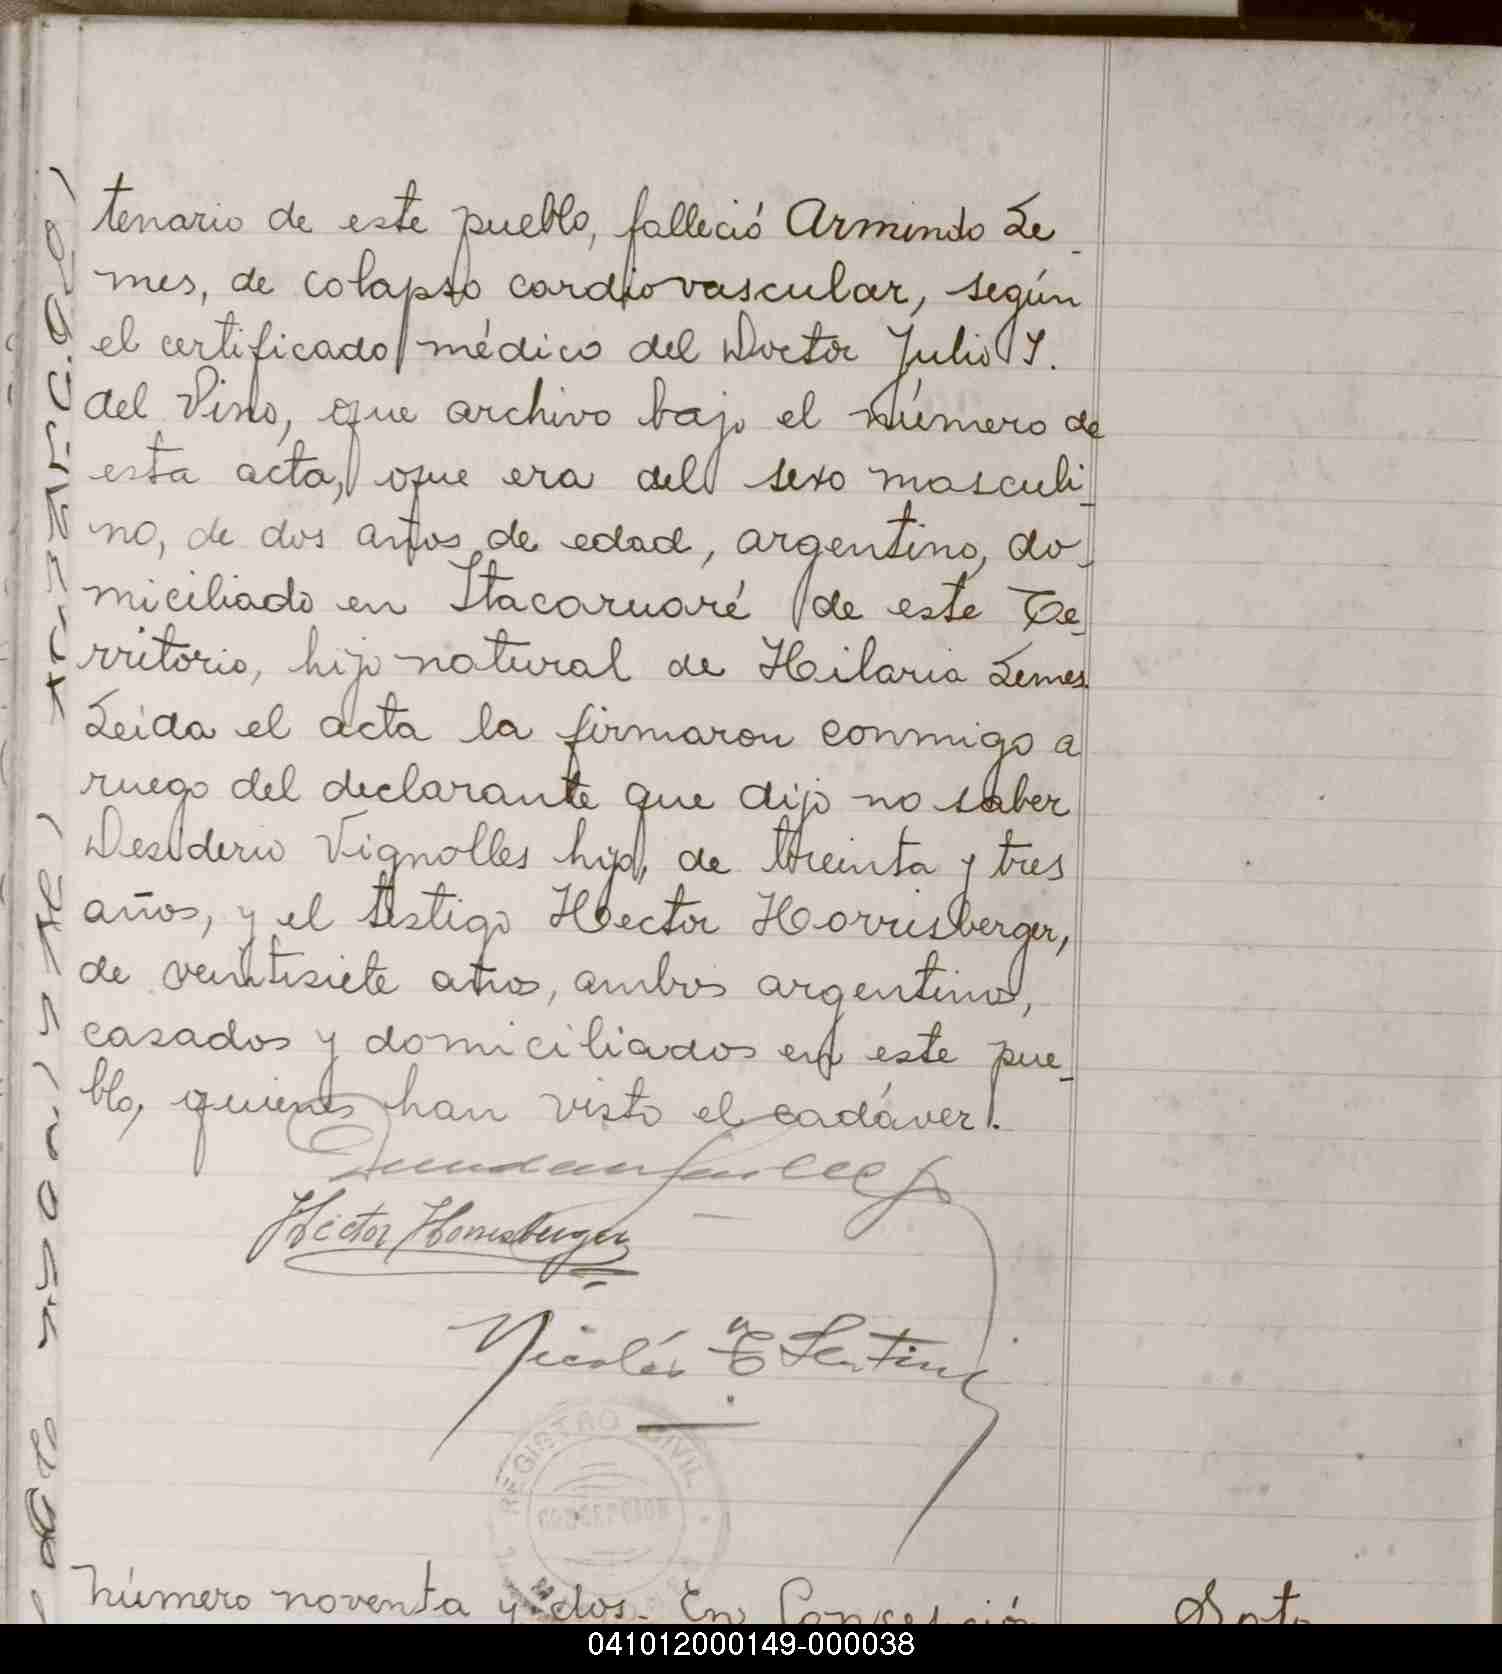 tenario de este pueblo, falleció Armindo Le-
mes, de colapso cardiovascular, según
el certificado médico del Doctor Julio I.
del Pino, que archivo bajo el número de
esta acta, que era del sexo masculi-
no, de dos años de edad, argentino, do-
miciliado en Itacaruaré de este Te-
rritorio, hijo natural de Hilaria Lemes
Leida el acta la firmaron conmigo a
ruego del declarante que dijo no saber
Desiderio Vignolles hijo, de treinta y tres
años, y el testigo Hector Horrisberger,
de veintisiete años, ambos argentinos,
casados y domiciliados en este pue-
blo, quienes han visto el cadáver.
Héctor Horrisberger
Nicolás
REGISTRO CIVIL
CONCEPCION
Número noventa y dos. En Concepción
Soto
041012000149-000038